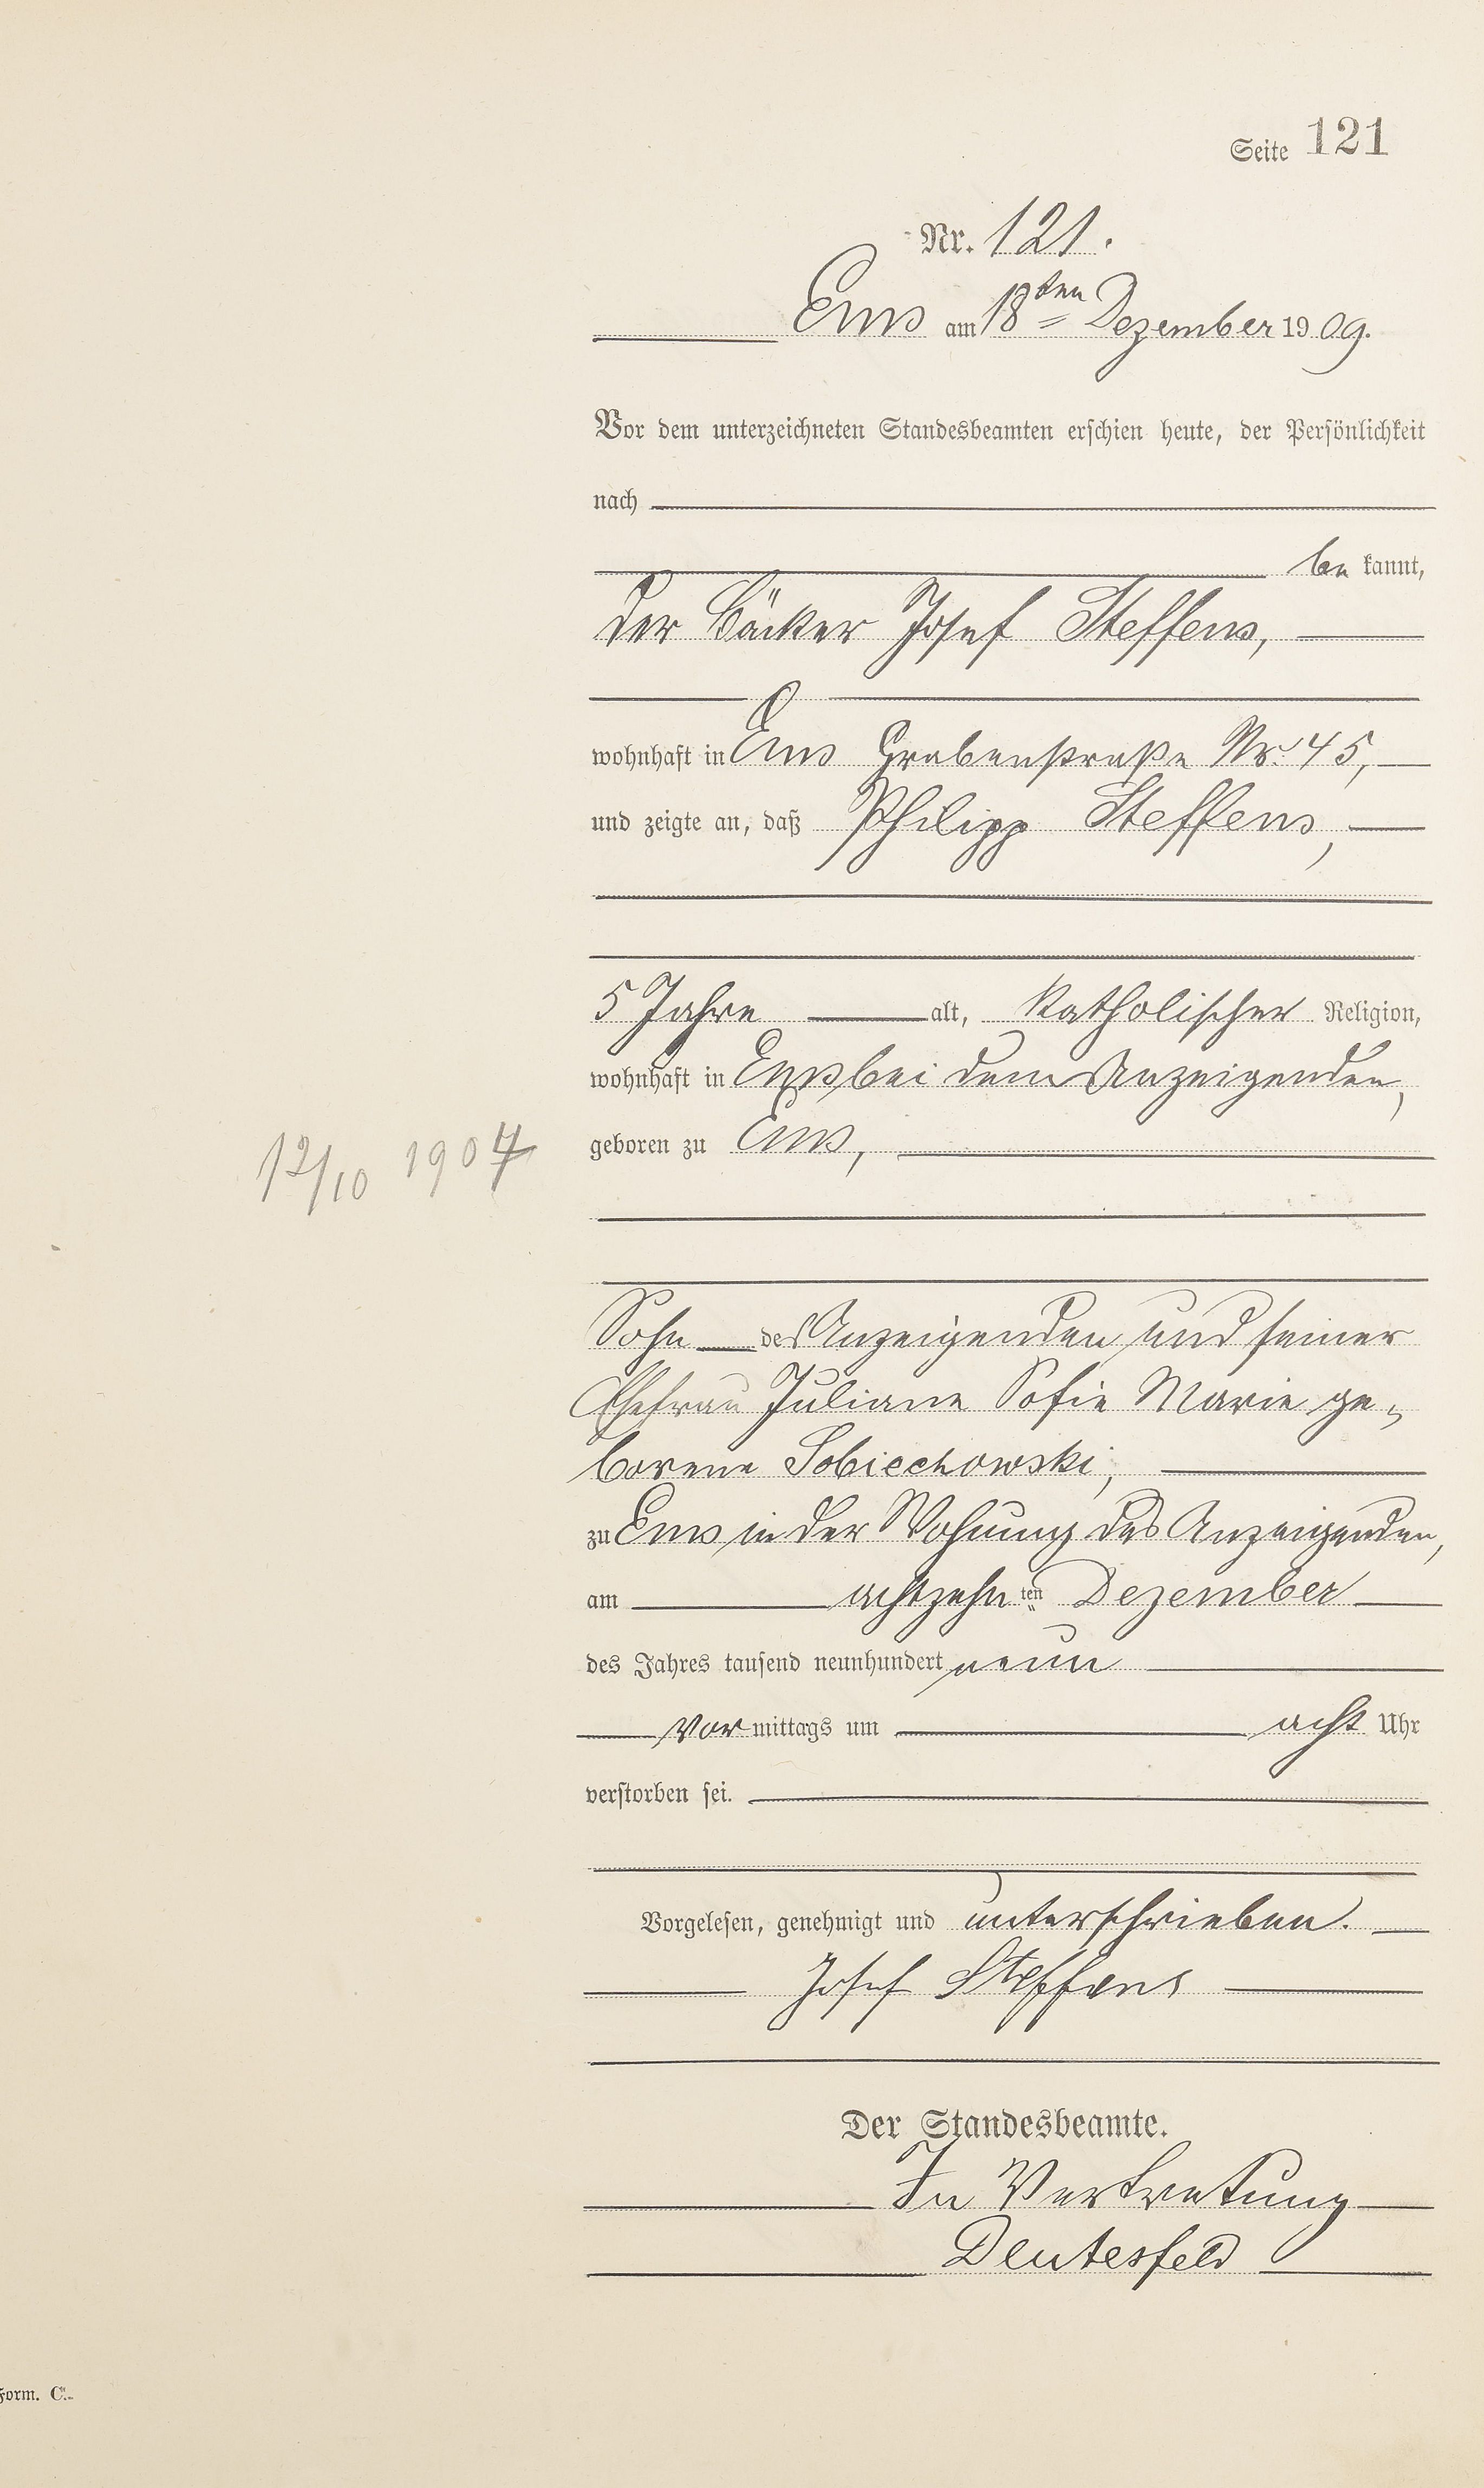 Seite 121
Nr. 121.
Ems am 18ten Dezember 1909.
Vor dem unterzeichneten Standesbeamten erschien heute, der Persönlichkeit
nach
be kannt,
der Bäcker Josef Steffens,
wohnhaft in Ems Grabenstraße Nr. 45,
und zeigte an, daß Philipp Steffens,
5 Jahre alt, katholischer Religion,
wohnhaft in Ems bei dem Anzeigenden,
geboren zu Ems,
12/10 1904
Sohn des Anzeigenden und seiner
Ehefrau Juliane Sofie Marie ge-
borene Sobiechowski,
zu Ems in der Wohnung des Anzeigenden,
am achtzehn ten Dezember
des Jahres tausend neunhundert neun
Vor mittags um acht Uhr
verstorben sei.
Vorgelesen, genehmigt und unterschrieben.
Josef Steffens
Der Standesbeamte.
In Vertretung
Deutesfeld
Form. C.